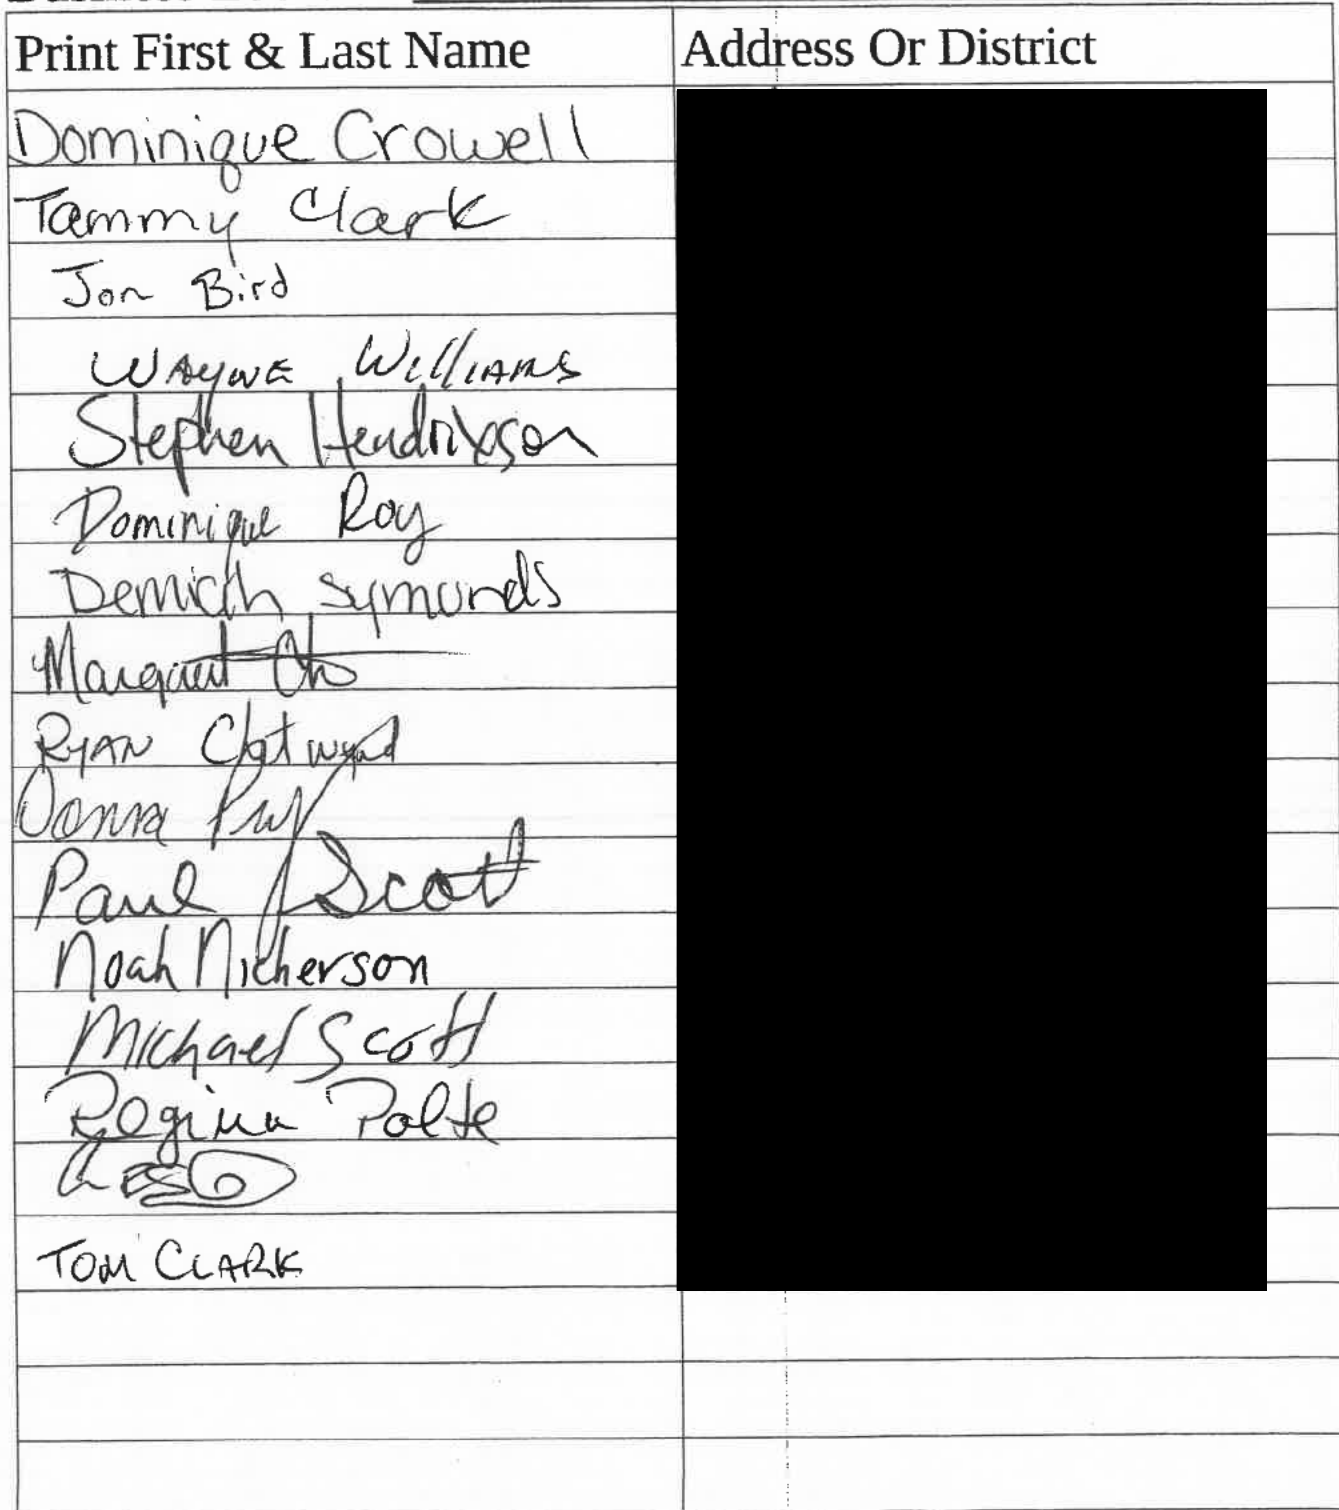 Print First & Last Name
Address Or District
Dominique Crowell
Tammy Clark
Jon Bird
WAYNE WilliAMS
Stephen Hendrixson
Dominique Roy
symonds
Margaret
RYAN Chetwynd
Donna
Paul Scott
Noah Nickerson
Michael Scott
Regina Polte
TOM CLARK